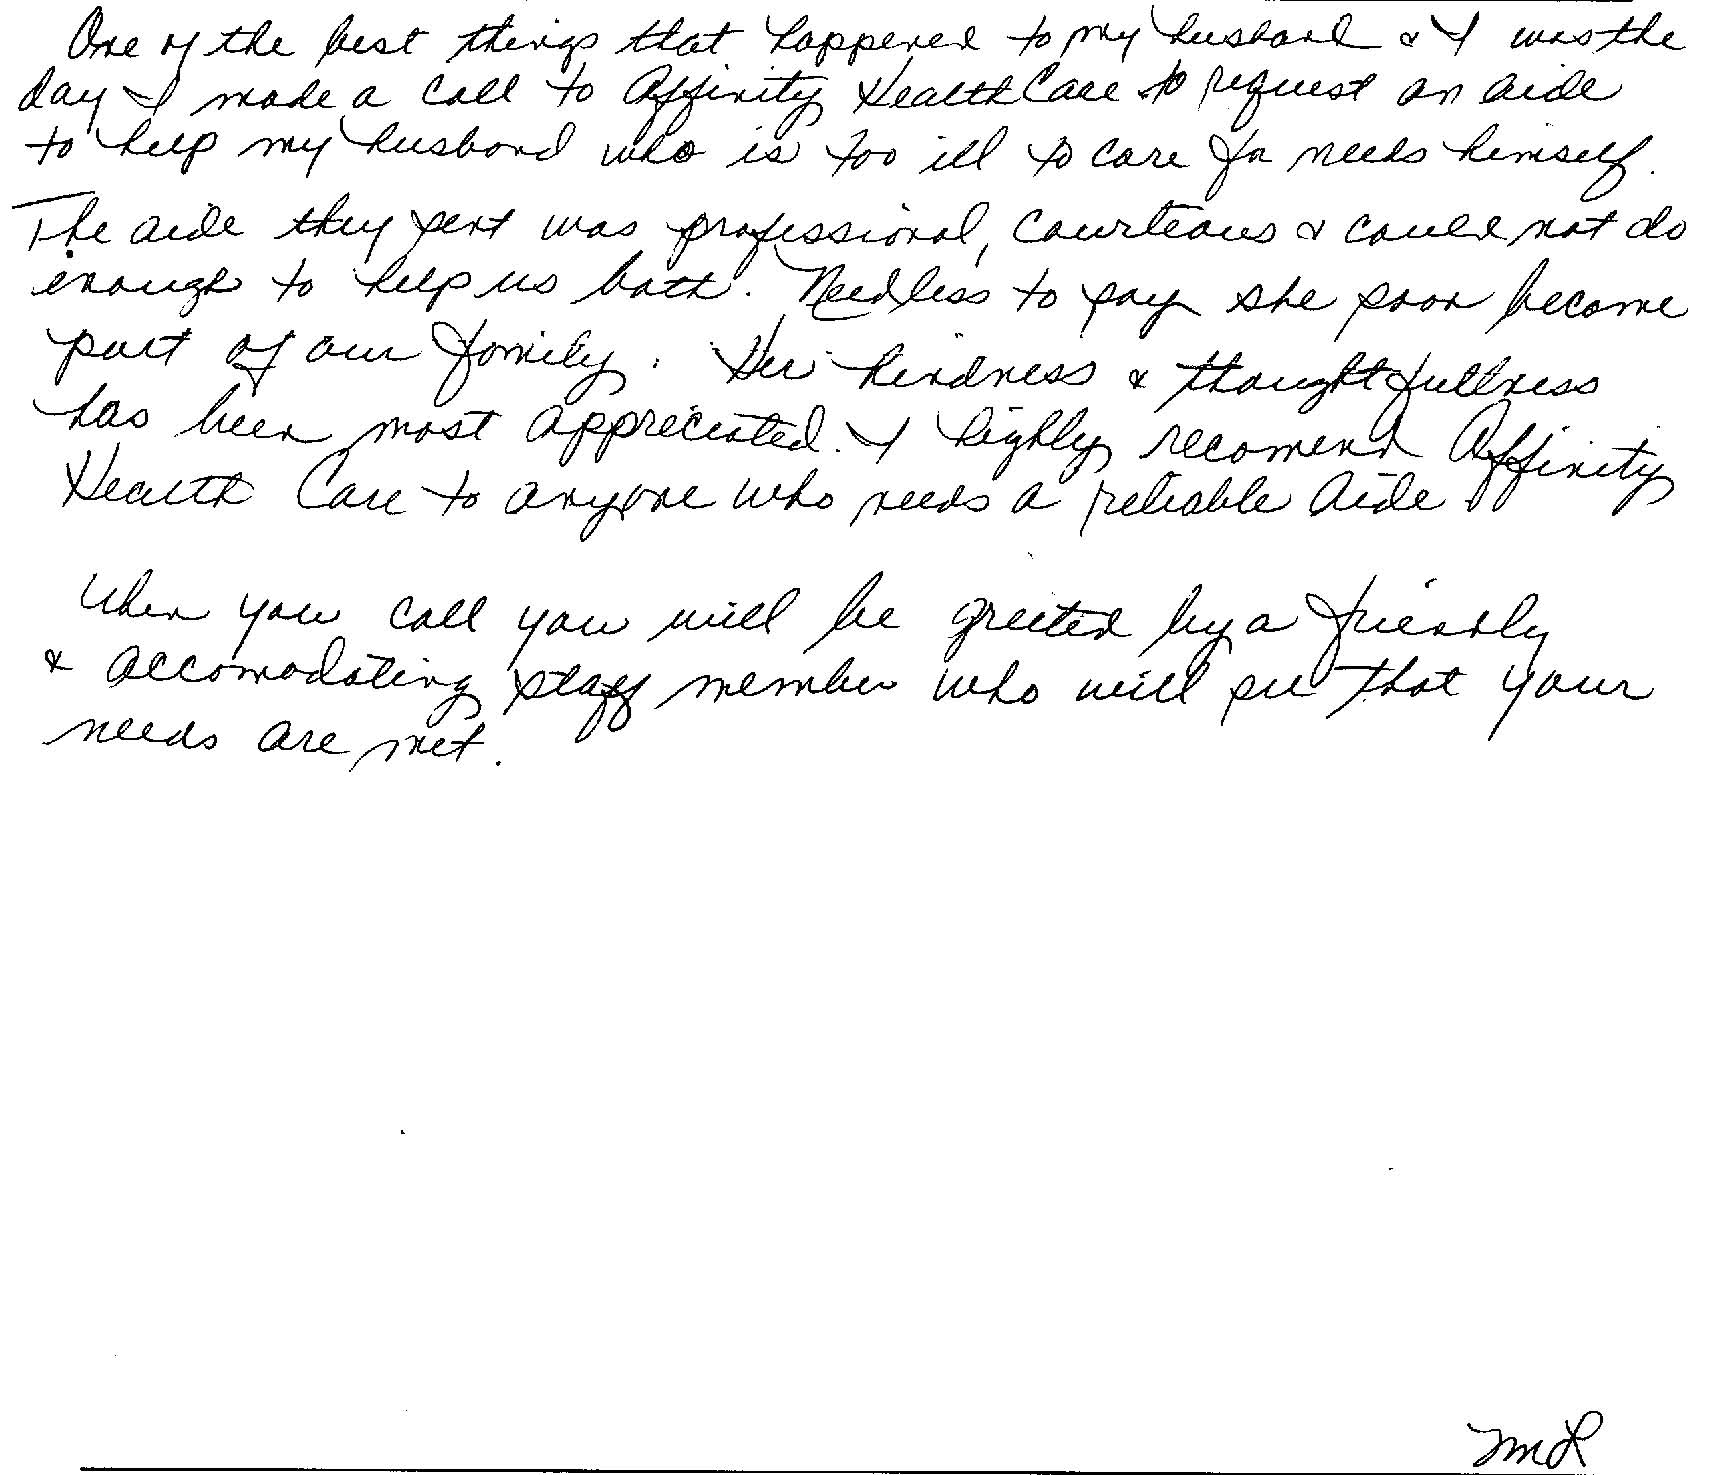 One of the best things that happened to my husband & I was the
day I made a call to Affinity HealthCare to request an aide
to help my husband who is too ill to care for needs himself.
The aide they sent was professional, courteous & could not do
enough to help us both. Needless to say she soon become
part of our family. Her kindness & thoughtfullness
has been most appreciated. I highly recomend Affinity
Health Care to anyone who needs a reliable aide.
When you call you will be greeted by a friendly
& accomodating staff member who will see that your
needs are met.